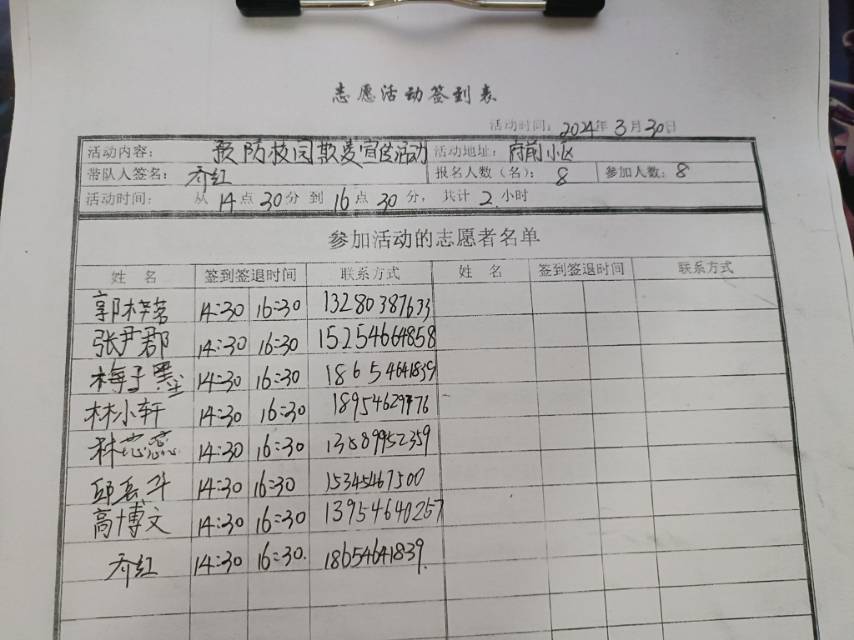 志愿活动签到表
活动时间：2024年3月30日
活动内容： 预防校园欺凌宣传活动 活动地址：府前小区
带队人签名： 乔红 报名人数（名）： 8 参加人数：8
活动时间： 从 14 点 30 分 到 16 点 30 分， 共计 2 小时
参加活动的志愿者名单
姓 名 签到签退时间 联系方式 姓 名 签到签退时间 联系方式
郭梓茗 14:30 16:30 13280387633
张尹郡 14:30 16:30 15254664858
梅子墨 14:30 16:30 18654641839
林小轩 14:30 16:30
林芯蕊 14:30 16:30 13589952359
14:30 16:30 15345467500
高博文 14:30 16:30 13954640257
乔红 14:30 16:30. 18654641839.